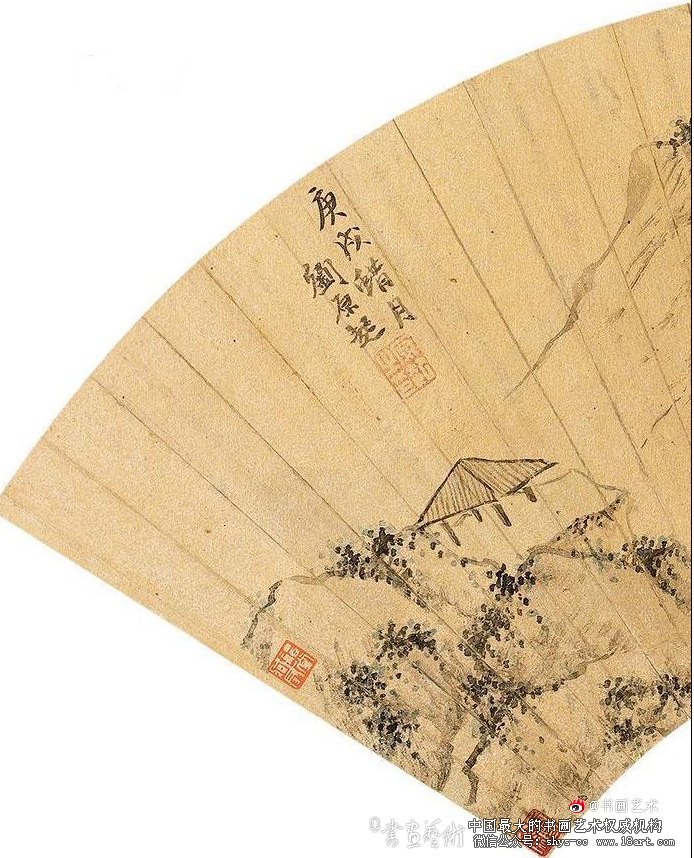 庚戌蜡月
劉原起
@书画艺术
書畫藝術
中国最大的书画艺术权威机构
微信公众号: shys-cc www.18art.com